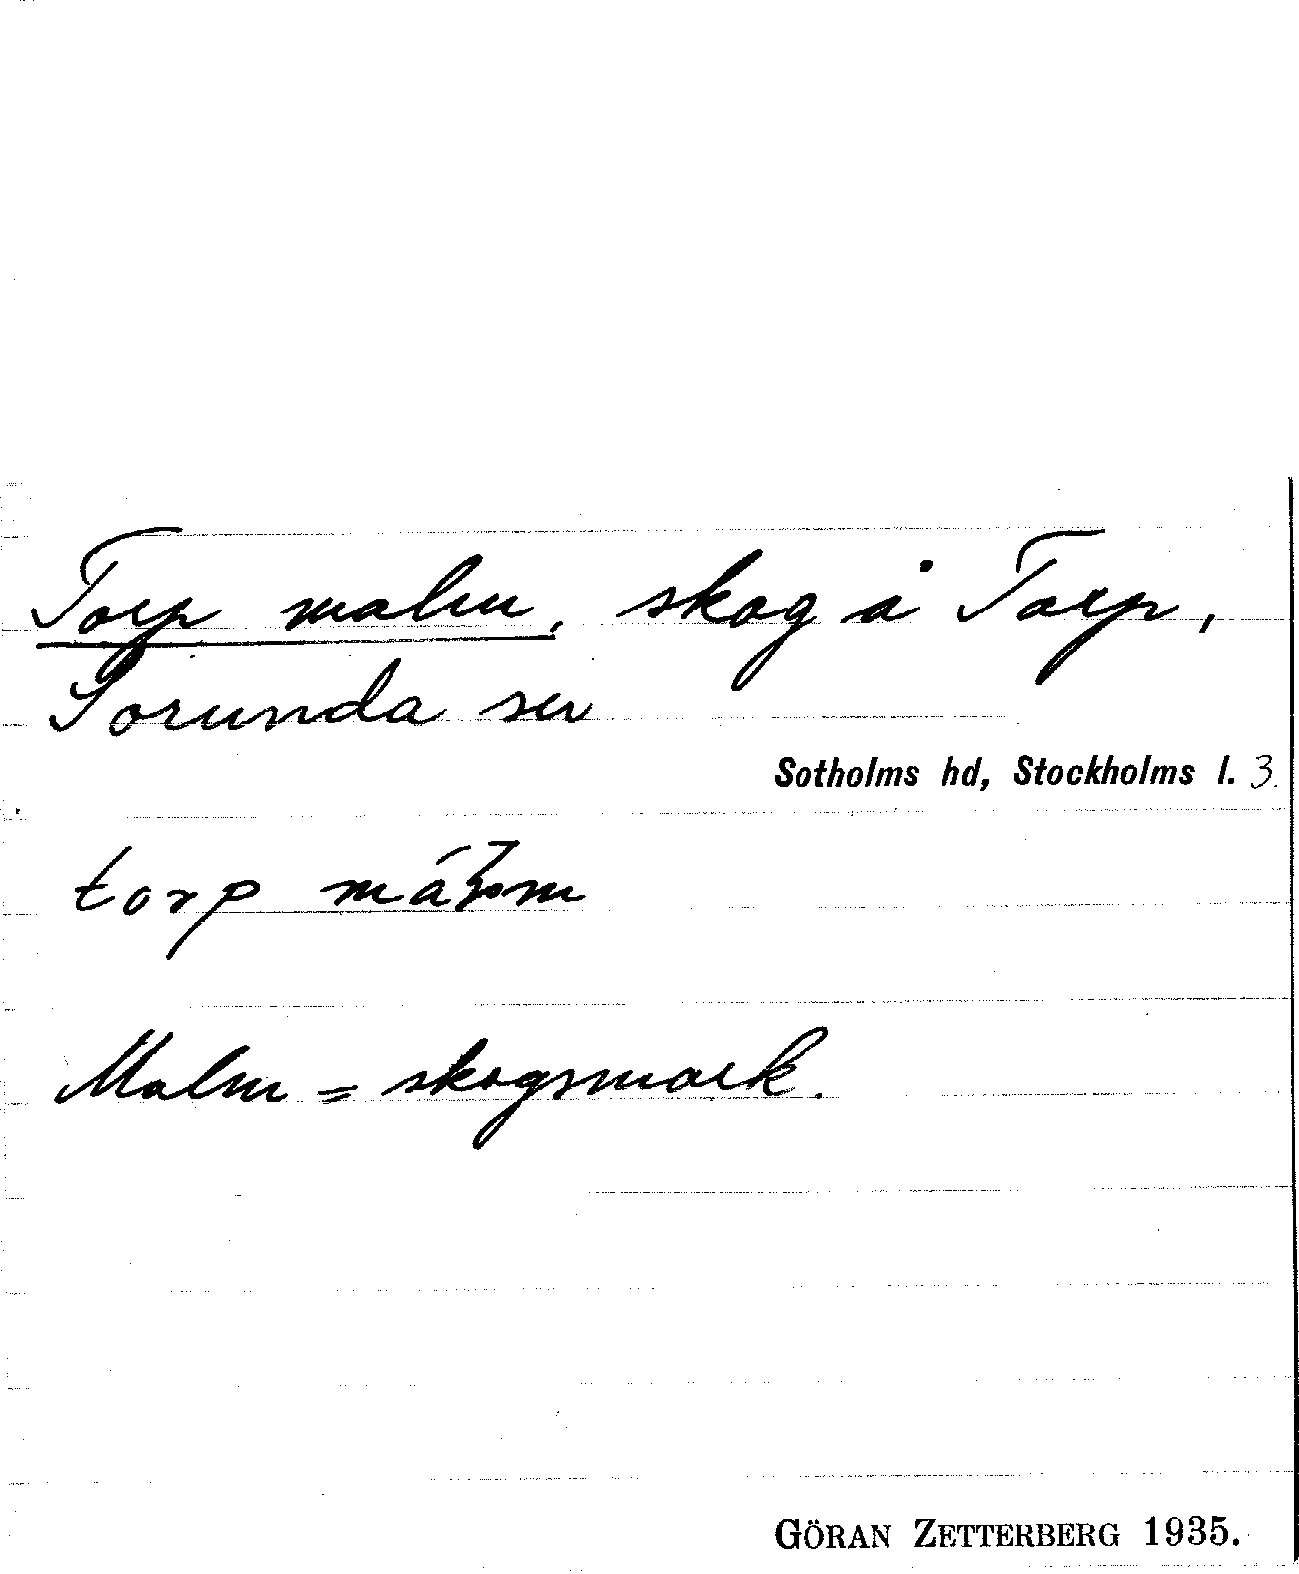 Torp malm, skog å Torp,
Sorunda sn
Sotholms hd, Stockholms l. 3.
torp
Malm = skogsmark.
GÖRAN ZETTERBERG 1935.